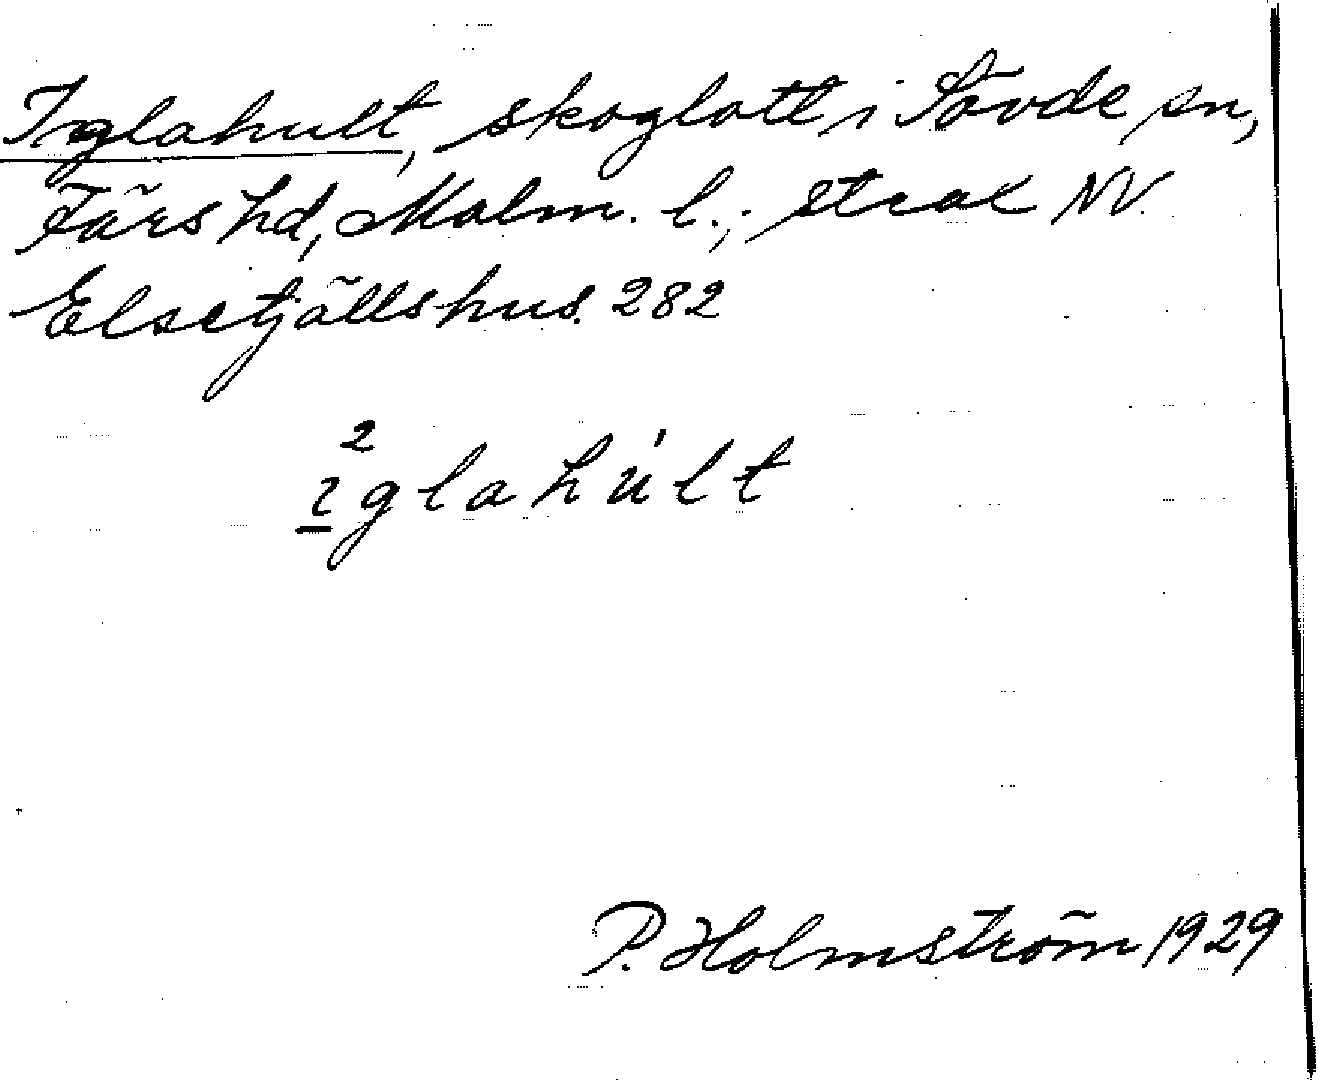 Iglahult, skoglott i Sövde sn,
Färs hd, Malm. l.; strax NV.
Elsetjällshus. 282
2
i̲glahúlt
P. Holmström 1929